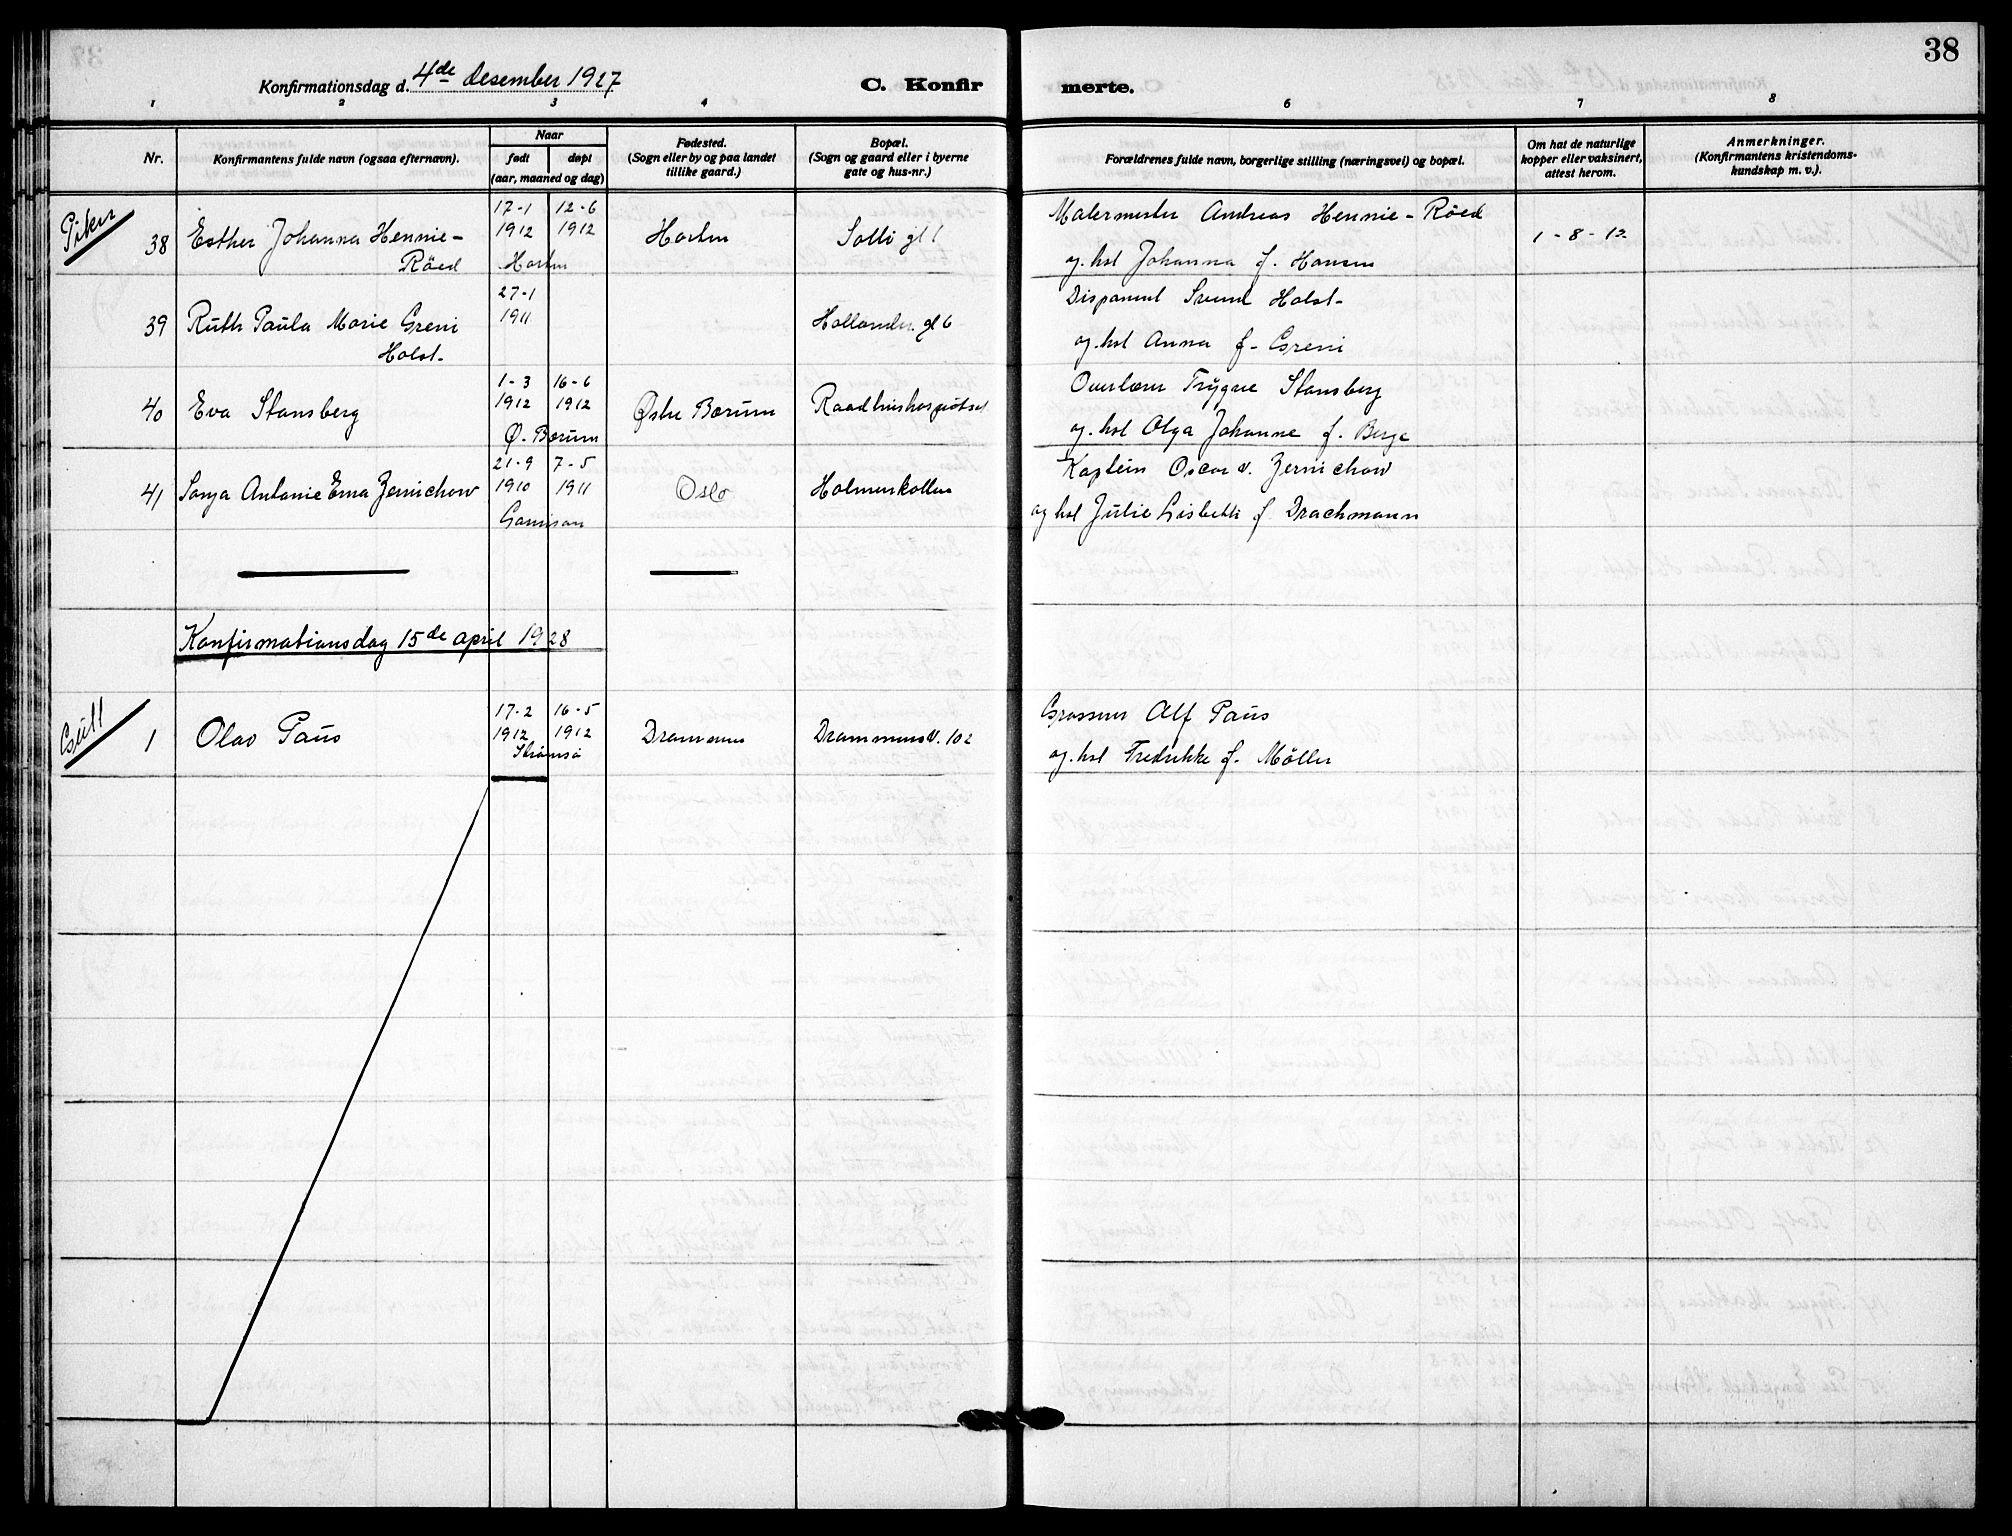 38
Konfirmationsdag d. 4de desember 1927
C. Konfirmerte.
1 2 3 4 6 7 8
Nr.
Konfirmantens fulde navn (ogsaa efternavn).
Naar
født døpt
(aar, maaned og dag)
Fødested.
(Sogn eller by og paa landet
tillike gaard.)
Bopæl.
(Sogn og gaard eller i byerne
gate og hus-nr.)
Forældrenes fulde navn, borgerlige stilling (næringsvei) og bopæl.
Om hat de naturlige
kopper eller vaksinert,
attest herom.
Anmerkninger.
(Konfirmantens kristendoms-
kundskap m. v.).
Piker
17-1 12-6 Malermester Andreas Hennie-Röed
38 Esther Johanna Hennie- 1912 1912 Horten Solli gt 1 1-8-12
Röed Horten og hst Johanna f. Hansen
27-1 Disponent Svend Holst-
39 Ruth Paula Marie Greni 1911 Hollender gt 6
Holst- og hst Anna f. Greni
1-3 16-6 Overlærer Trygve Stansberg
40 Eva Stansberg 1912 1912 Østre Bærum Raadhushospitset
Ø. Bærum og hst Olga Johanne f. Berge
21-9 7-5 Kaptein Oscar v. Zernichow
41 Sonja Antonie Ema Zernichow 1910 1911 Oslo Holmenkollen
Garnison og hst Julie Lisbeth f. Drachmann
Konfirmationsdag 15de april 1928
Gutt
17-2 16-5 Grosserer Alf Paus
1 Olav Paus 1912 1912 Drammen Drammensv. 102
Strømsø og hst Fredrikke f. Möller